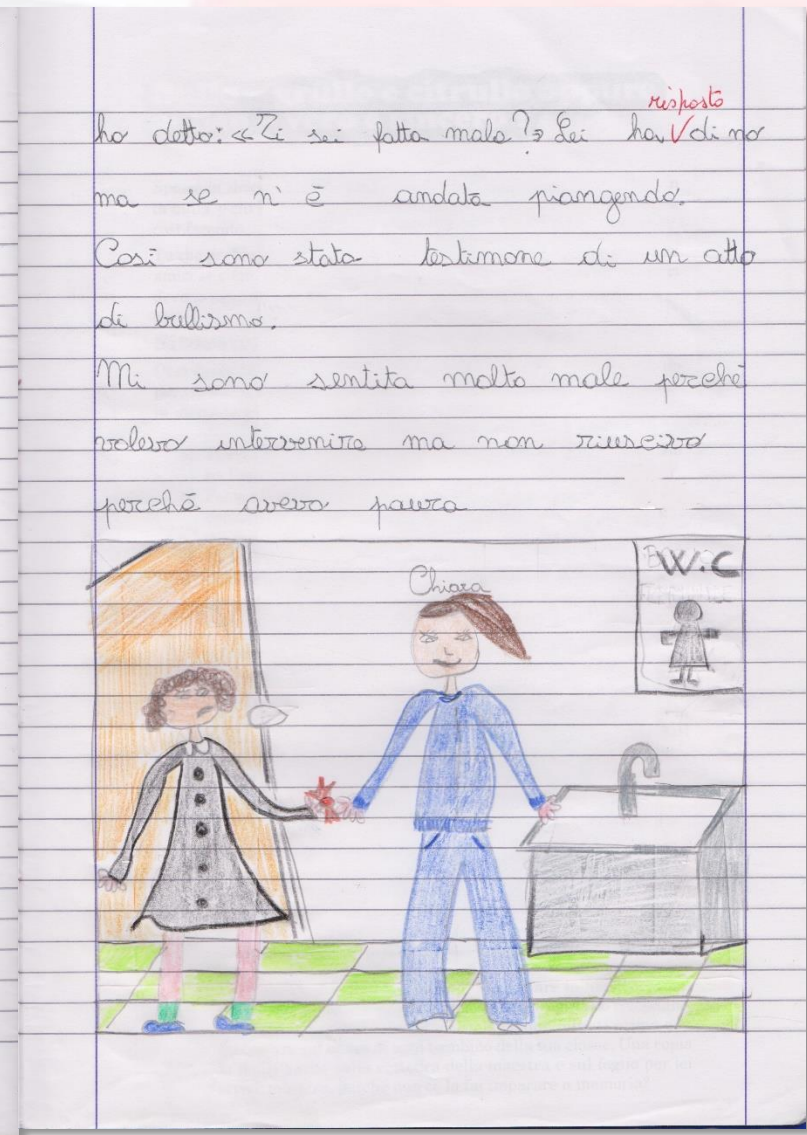 risposto
ho detto: «Ti sei fatta male?» Lei ha V di no
ma se n'è andata piangendo.
Così sono stata testimone di un atto
di bullismo.
Mi sono sentita molto male perché
volevo intervenire ma non riuscivo
perché avevo paura
W.C
Chiara